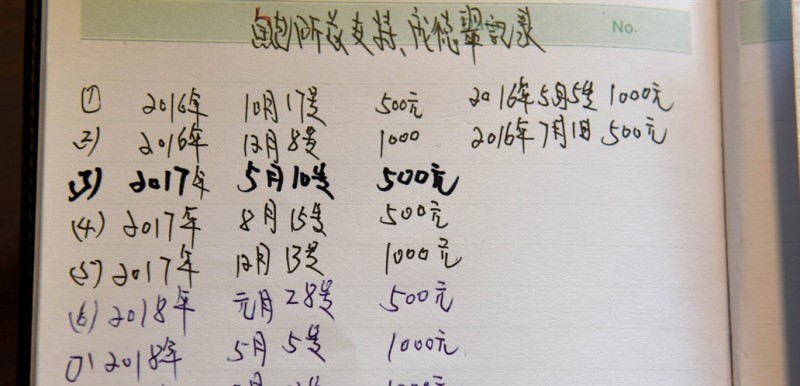 鲍所长支持、成德翠记录
No.
① 2016年 10月17号 500元 2016年5月5号 1000元
2) 2016年 12月8号 1000 2016年7月1日 500元
(3) 2017年 5月10号 500元
(4) 2017年 8月15号 500元
(5) 2017年 12月13号 1000元
(6) 2018年 元月28号 500元
(7) 2018年 5月5号 1000元